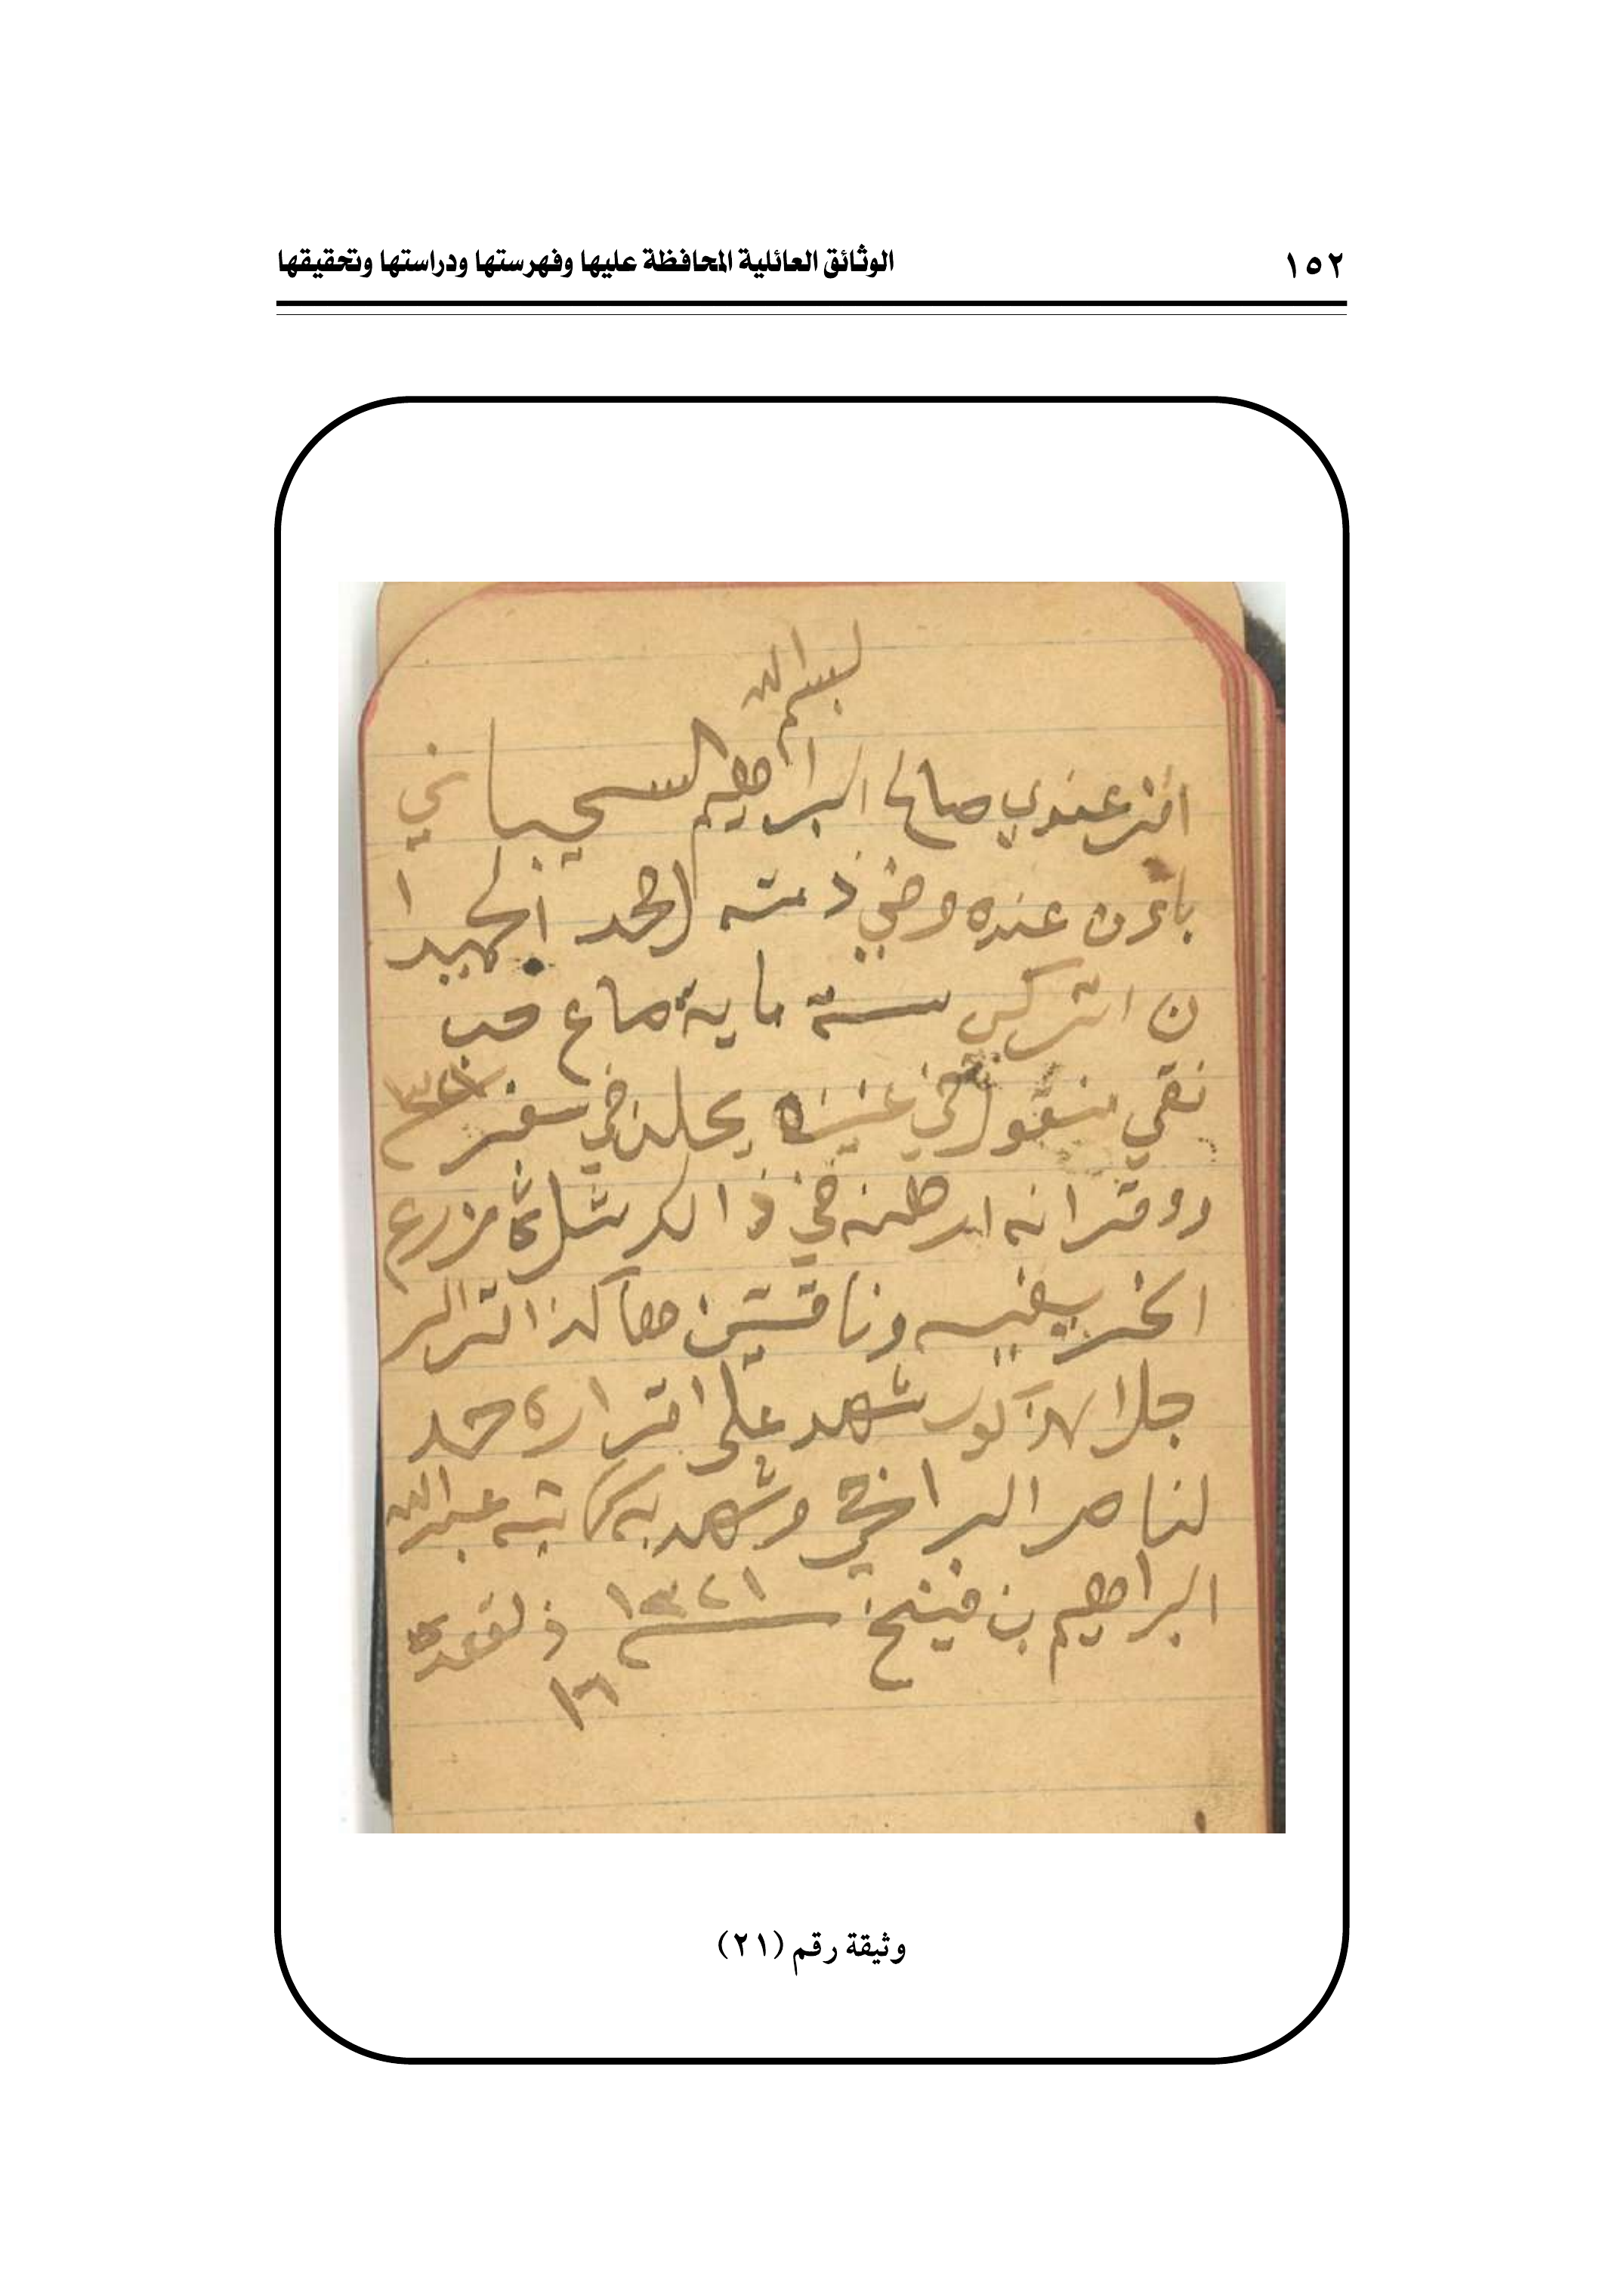 ١٥٢
الوثائق العائلية المحافظة عليها وفهرستها ودراستها وتحقيقها
بسم الله
اقر عندي صالح البراهيم السحيباني
بان عنده وفي ذمته لحمد الحميدا
ن التركي ستة ماية صاع حب
نقي منقول في عنيزه يحلن في سفر
وقرانه ارهنه في ذالك زرع
الخريفيه وناقتين هاكذا اقر الر
جل المذكور شهد على اقراره حمد
لناصر البراحي وشهد به كاتبه عبدالله
البراهيم بن فينخ ١٣٢١ ذلقعدة
١٦
وثيقة رقم (٢١)